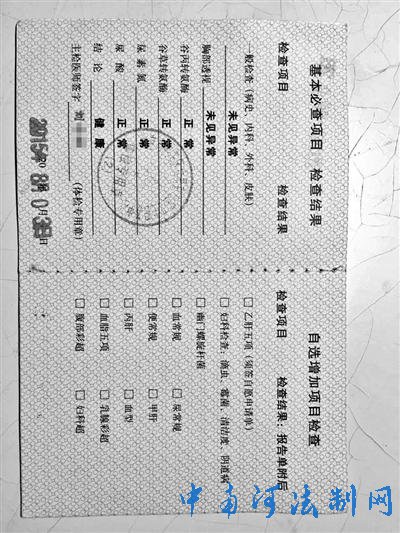 基本必查项目 检查结果
检查项目 检查结果
一般检查（病史、内科、外科、皮肤）
未见异常
胸部透视 未见异常
谷丙转氨酶 正常
谷草转氨酶 正常
尿素氮 正常
尿酸 正常
结论 健康
主检医师签字 刘 （体检专用章）
2015年08月03日
自选增加项目检查
检查项目 检查结果：报告单附后
□乙肝五项（须签自愿申请单）
□妇科检查：滴虫、霉菌、清洁度、阴道病
□幽门螺旋杆菌
□血常规 □尿常规
□便常规 □甲肝
□丙肝 □血型
□血脂五项 □乳腺彩超
□腹部彩超 □妇科超
中国河法制网